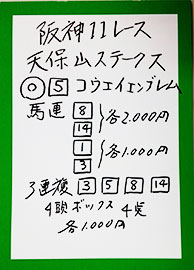 阪神11レース
天保山ステークス
◎ 5 コウエイエンブレム
馬連 8
14 } 各2.000円
1
3 } 各1.000円
3連複 3 5 8 14
4頭ボックス 4点
各1.000円